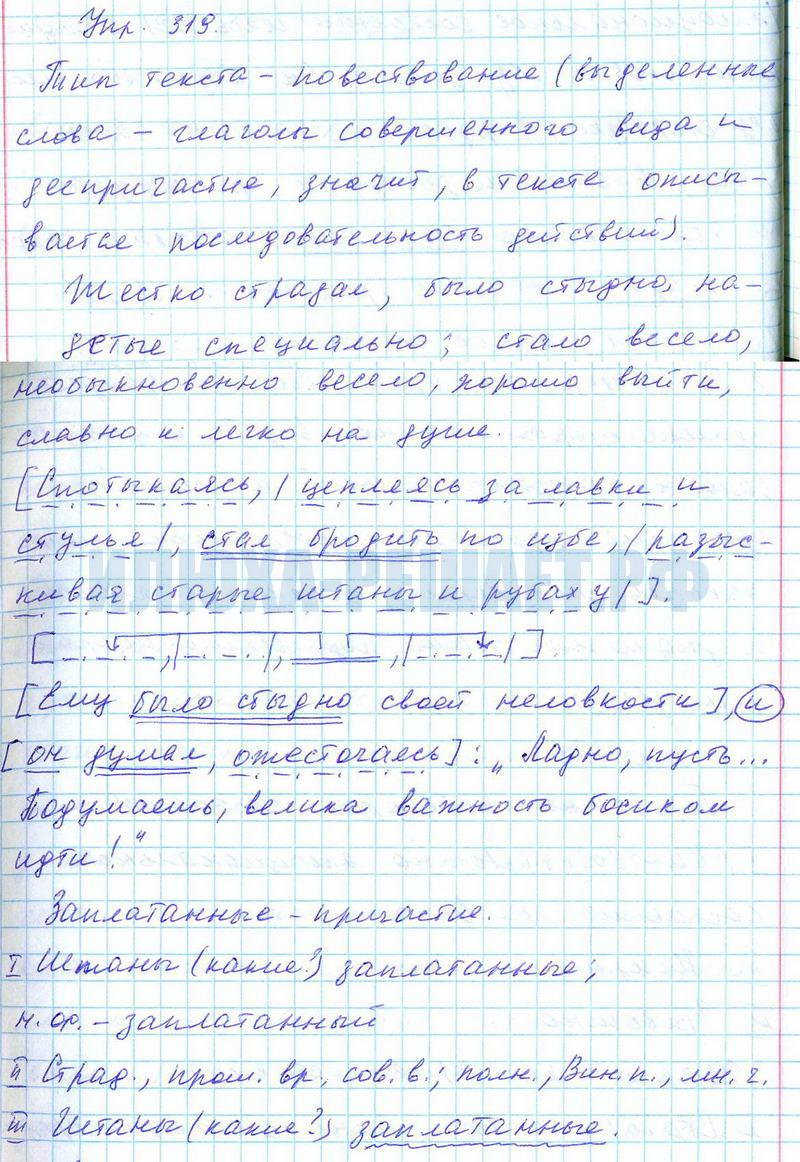 Упр. 319.
Тип текста – повествование (выделенные
слова – глаголы совершенного вида и
деепричастие, значит, в тексте описы-
вается последовательность действий).
Жестко страдал, было стыдно, на-
детые специально; стало весело,
необыкновенно весело, хорошо выйти,
славно и легко на душе.
[Спотыкаясь, / цепляясь за лавки и
стулья/, стал бродить по избе, /разыс-
кивая старые штаны и рубаху/].
ИЛЮХА-РЕШАЕТ.РФ
[Ему было стыдно своей неловкости], и
[он думал, ожесточаясь]: „Ладно, пусть...
Подумаешь, велика важность босиком
идти!“
Заплатанные – причастие.
I Штаны (какие?) заплатанные;
н. ф. – заплатанный
II Страд., прош. вр., сов. в.; полн., Вин. п., мн. ч.
III Штаны (какие?) заплатанные.